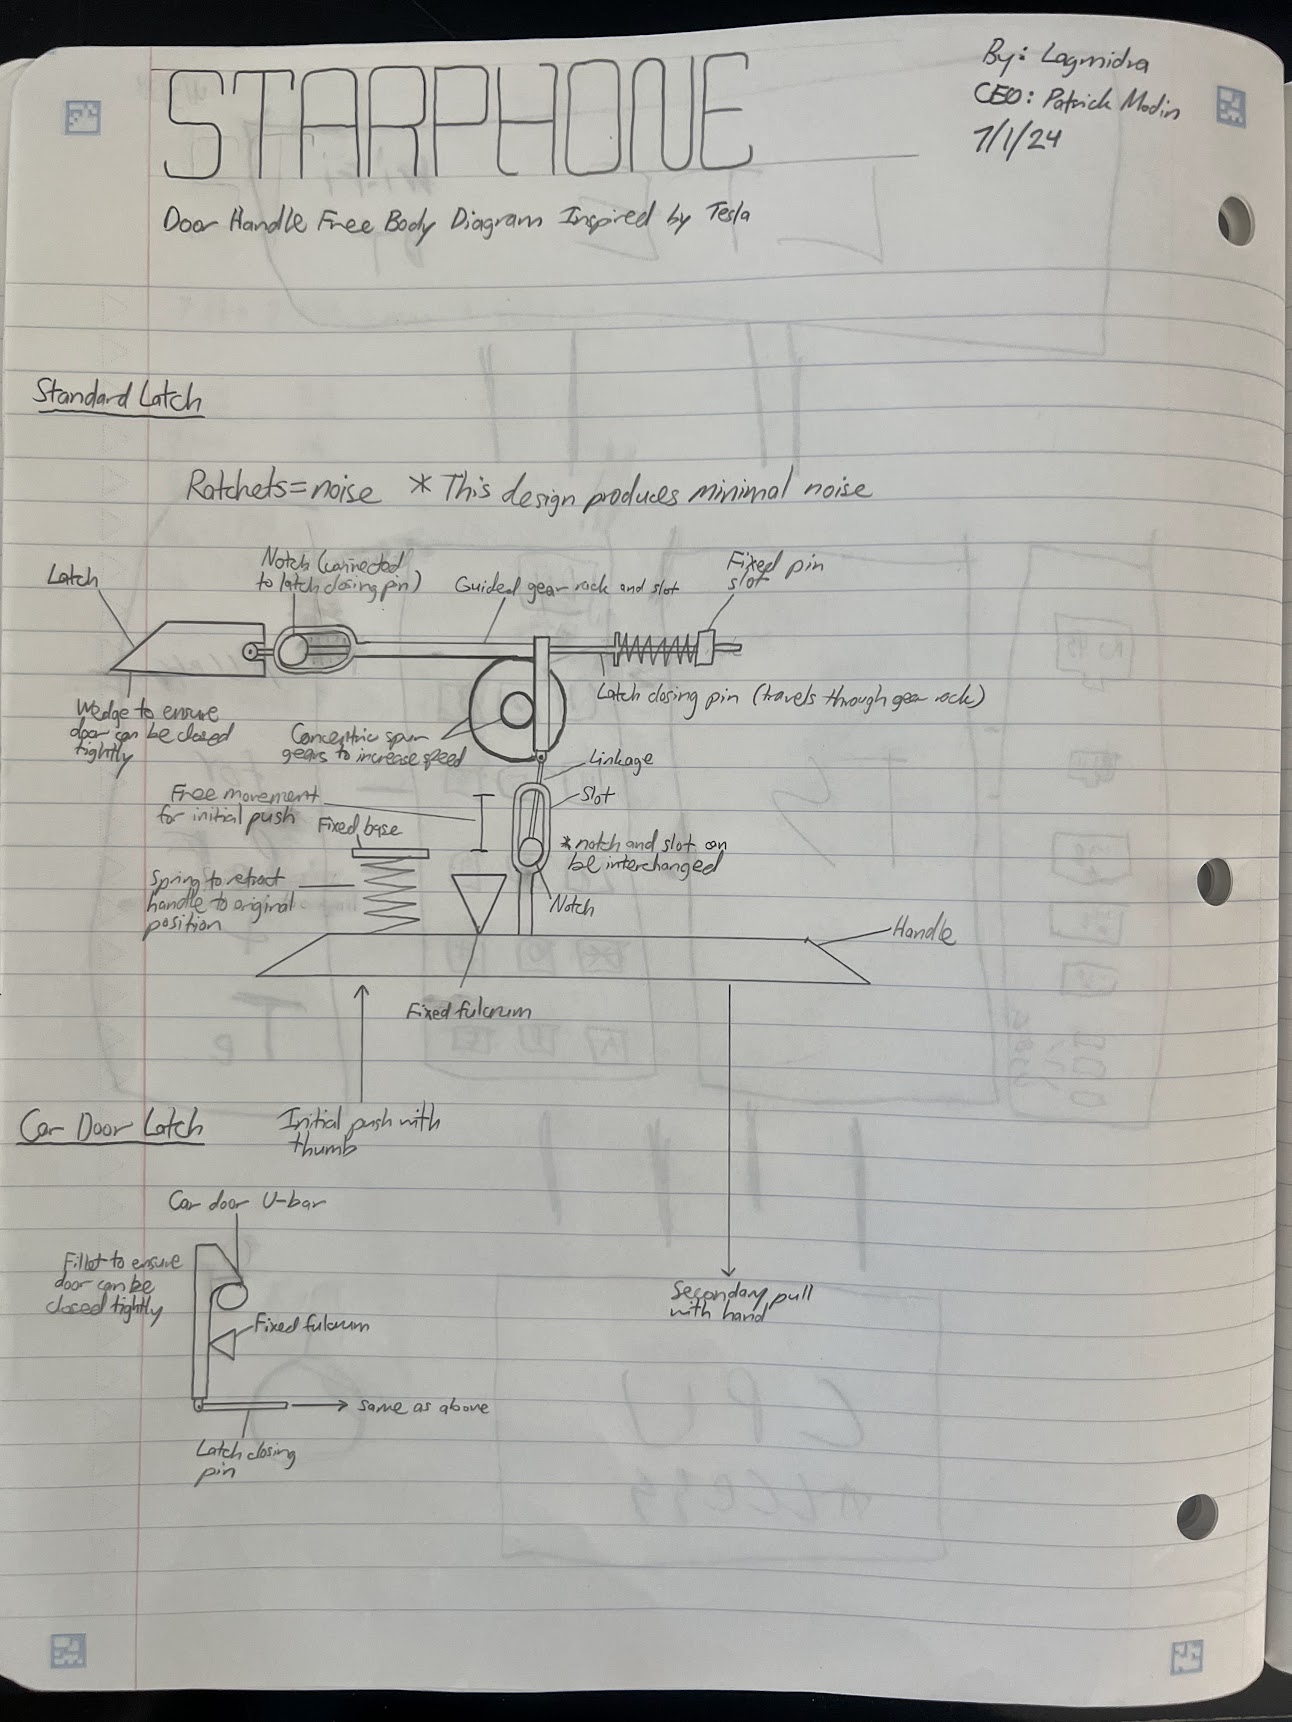 STARPHONE
By: Lagmidra
CEO: Patrick Modin
7/1/24
Door Handle Free Body Diagram Inspired by Tesla
Standard Latch
Ratchets=noise * This design produces minimal noise
Latch
Notch (connected
to latch closing pin)
Guided gear rack and slot
Fixed pin
slot
Latch closing pin (travels through gear rack)
Wedge to ensure
door can be closed
tightly
Concentric spur
gears to increase speed
Linkage
Free movement
for initial push
Slot
Fixed base
*notch and slot can
be interchanged
Spring to retract
handle to original
position
Notch
Handle
Fixed fulcrum
Initial push with
thumb
Car Door Latch
Car door U-bar
Fillet to ensure
door can be
closed tightly
Secondary pull
with hand
Fixed fulcrum
Same as above
Latch closing
pin